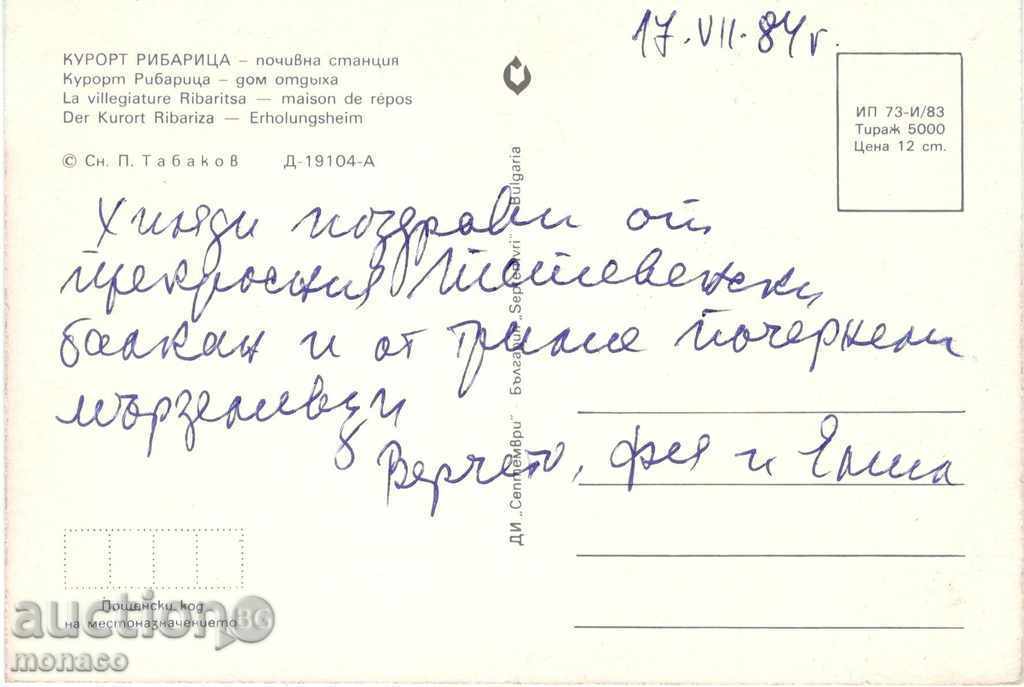 17.VII.84 г.
КУРОРТ РИБАРИЦА – почивна станция
Курорт Рибарица – дом отдыха
La villegiature Ribaritsa — maison de repos
Der Kurort Ribariza — Erholungsheim
© Сн. П. Табаков Д-19104-А
ИП 73-И/83
Тираж 5000
Цена 12 ст.
Хиляди поздрави от
прекрасния Тетевенски
балкан и от трима почернели
мързеливци
Верчето, и
ДИ „Септември" България „Septemvri" Bulgaria
Пощенски код
на местоназначението
аукцион BG
monaco